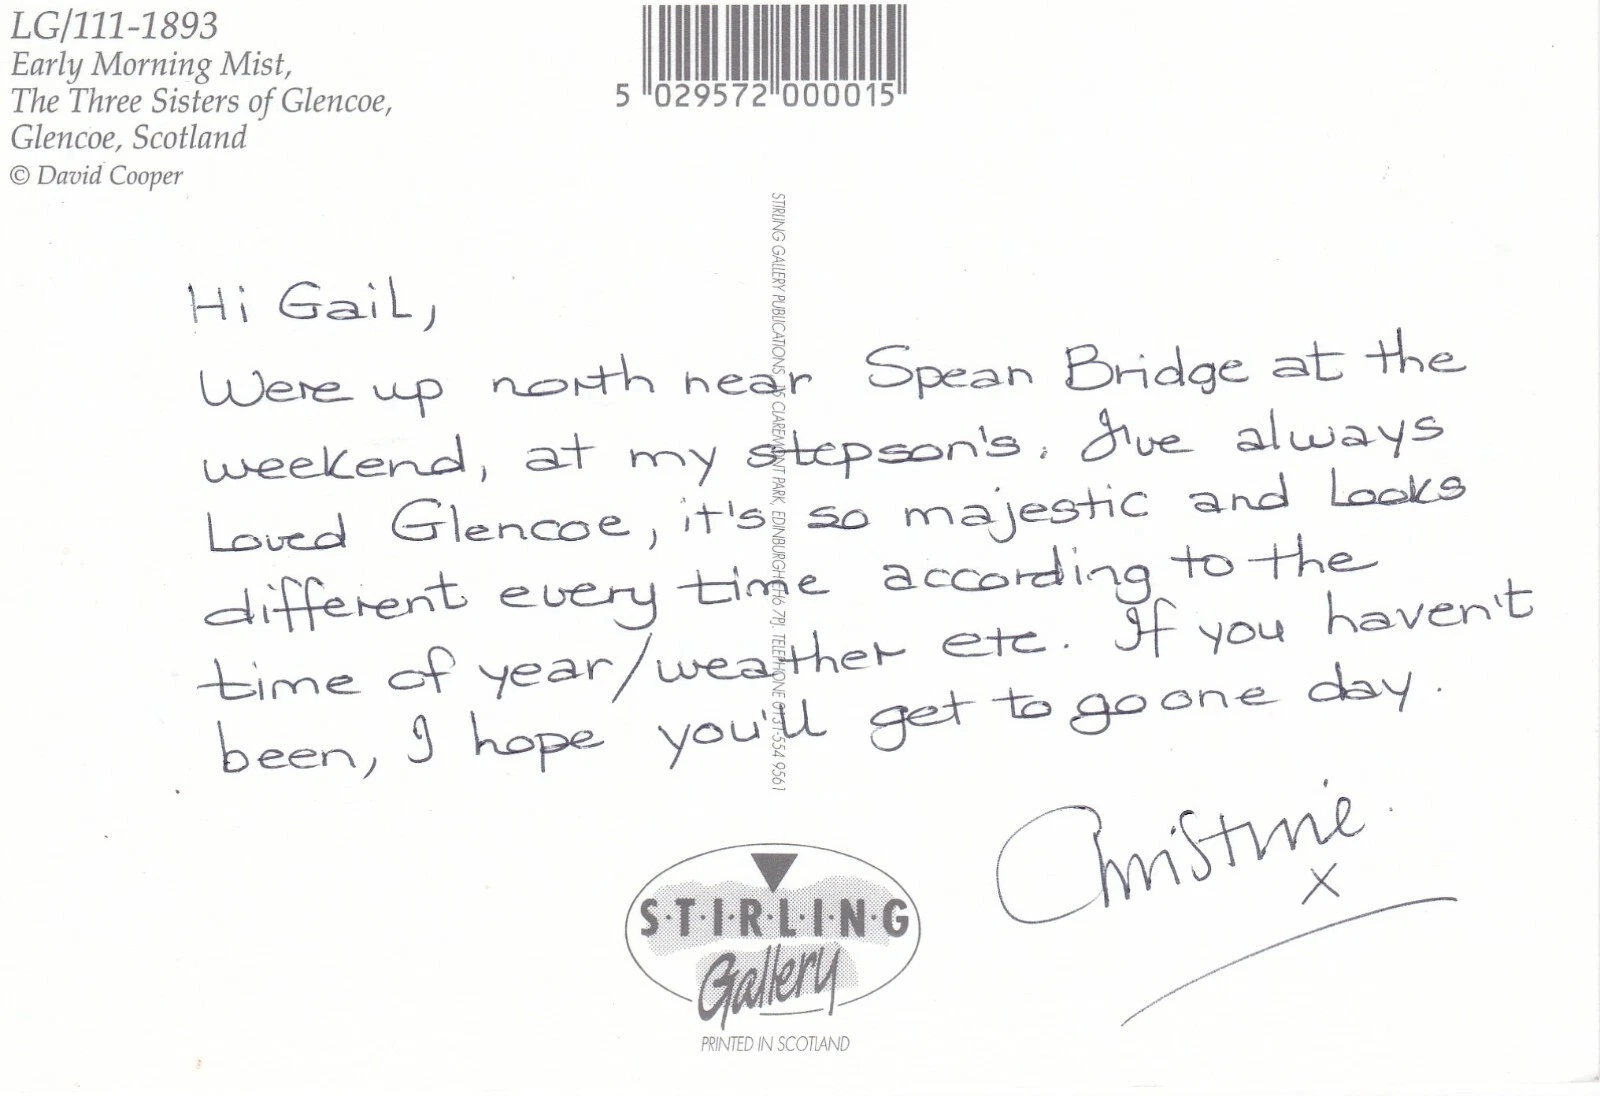 LG/111-1893
Early Morning Mist,
The Three Sisters of Glencoe,
Glencoe, Scotland
© David Cooper
5 029572 000015
STIRLING GALLERY PUBLICATIONS, 75 CLAREMONT PARK, EDINBURGH EH6 7PJ. TELEPHONE 0131-554 9561
Hi Gail,
Were up north near Spean Bridge at the
weekend, at my stepson's. I've always
Loved Glencoe, it's so majestic and Looks
different every time according to the
time of year/weather etc. If you haven't
been, I hope you'll get to go one day.
Christine.
x
S·T·I·R·L·I·N·G
Gallery
PRINTED IN SCOTLAND